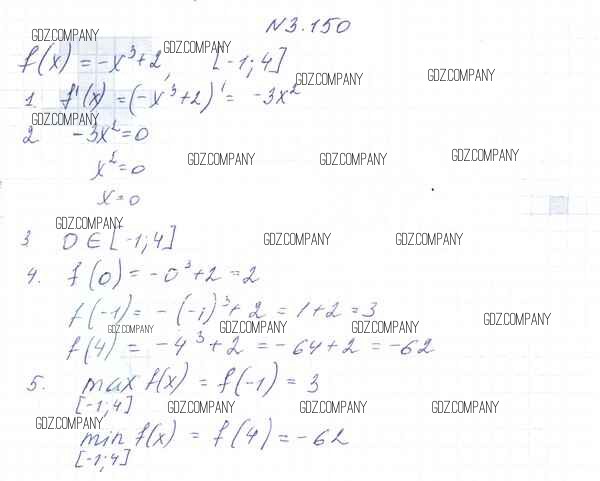 N3.150
GDZ.COMPANY GDZ.COMPANY
f(x) = -x³+2, [-1;4]
GDZ.COMPANY GDZ.COMPANY
1. f'(x) = (-x³+2)' = -3x²
GDZ.COMPANY
2 -3x²=0
GDZ.COMPANY GDZ.COMPANY GDZ.COMPANY
x²=0
x=0
GDZ.COMPANY
3 0∈[-1;4]
GDZ.COMPANY GDZ.COMPANY
4. f(0) = -0³+2 = 2
f(-1) = -(-1)³+2 = 1+2 = 3
GDZ.COMPANY GDZ.COMPANY GDZ.COMPANY GDZ.COMPANY
f(4) = -4³+2 = -64+2 = -62
5. max f(x) = f(-1) = 3
[-1;4]
GDZ.COMPANY GDZ.COMPANY GDZ.COMPANY
GDZ.COMPANY
min f(x) = f(4) = -62
[-1;4]